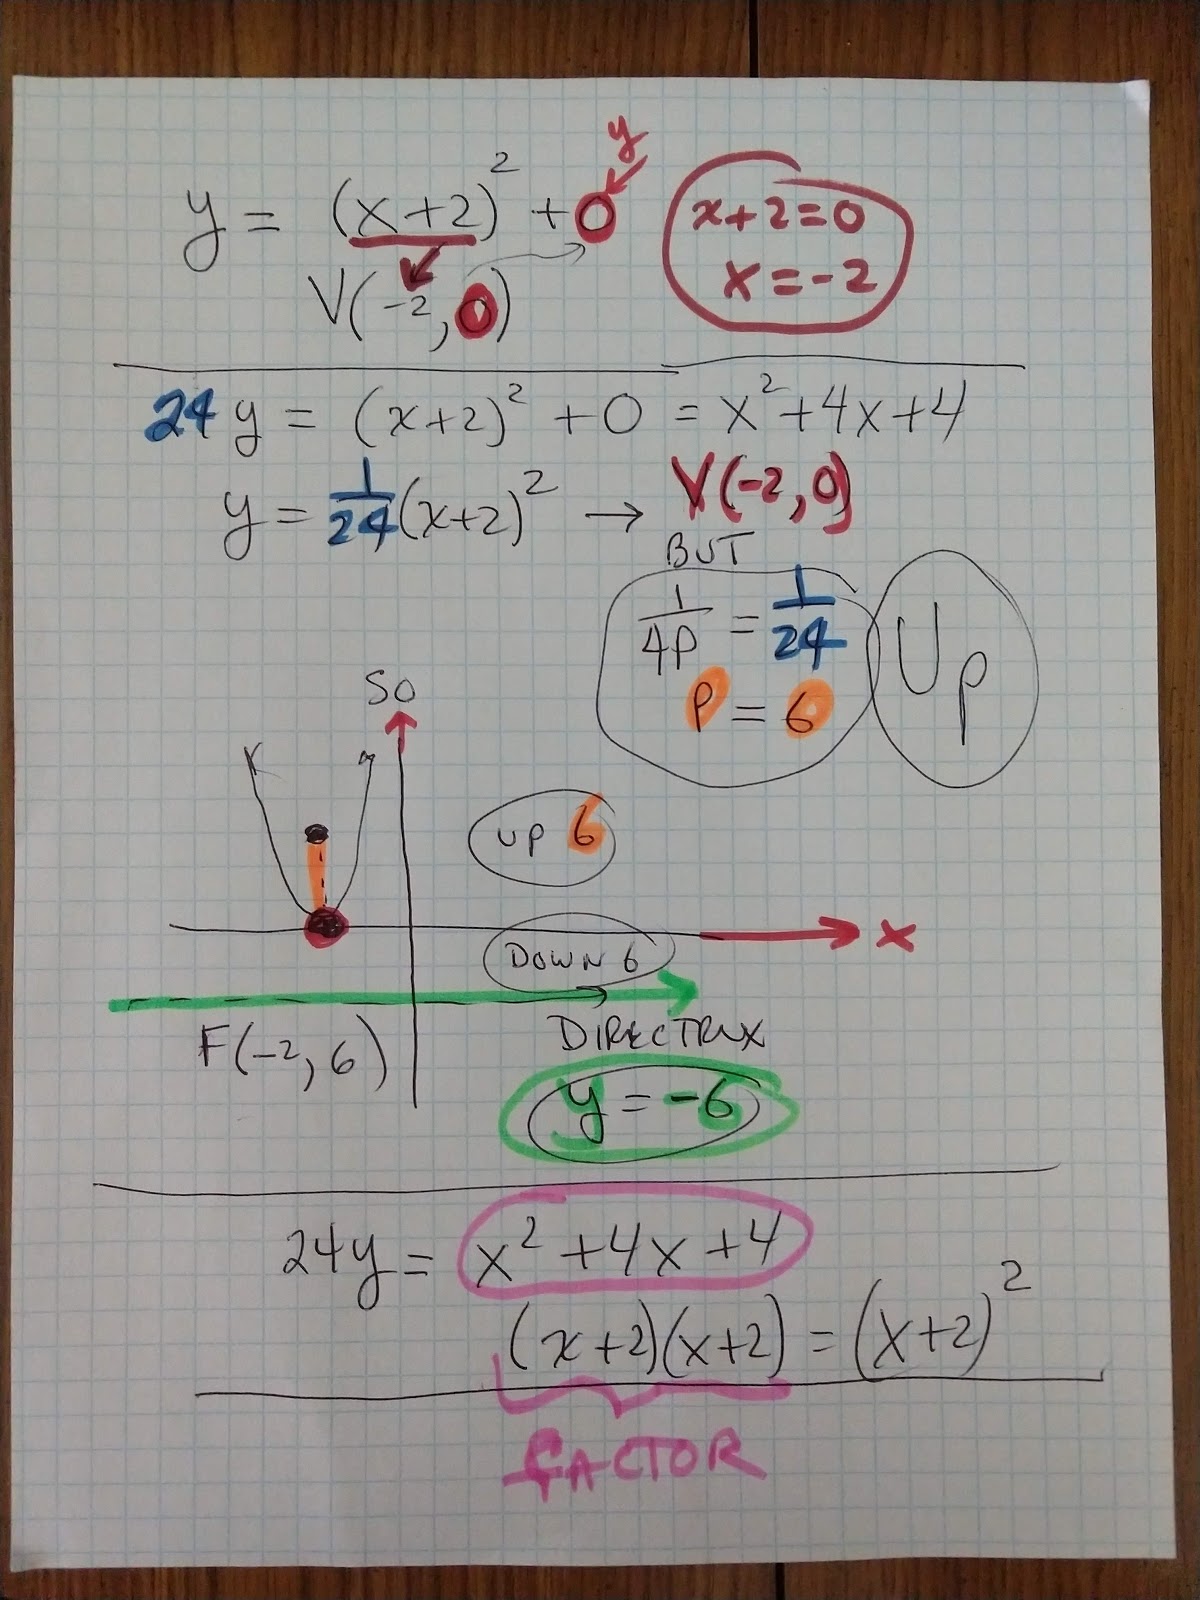 y
y = (x+2)² + 0
x+2=0
x=-2
V(-2, 0)
24 y = (x+2)² + 0 = x² + 4x + 4
y = 1/24 (x+2)² → V(-2, 0)
BUT
1/4P = 1/24
P = 6
Up
SO
UP 6
x
DOWN 6
F(-2, 6)
DIRECTRIX
y = -6
24y = x² + 4x + 4
(x+2)(x+2) = (x+2)²
FACTOR